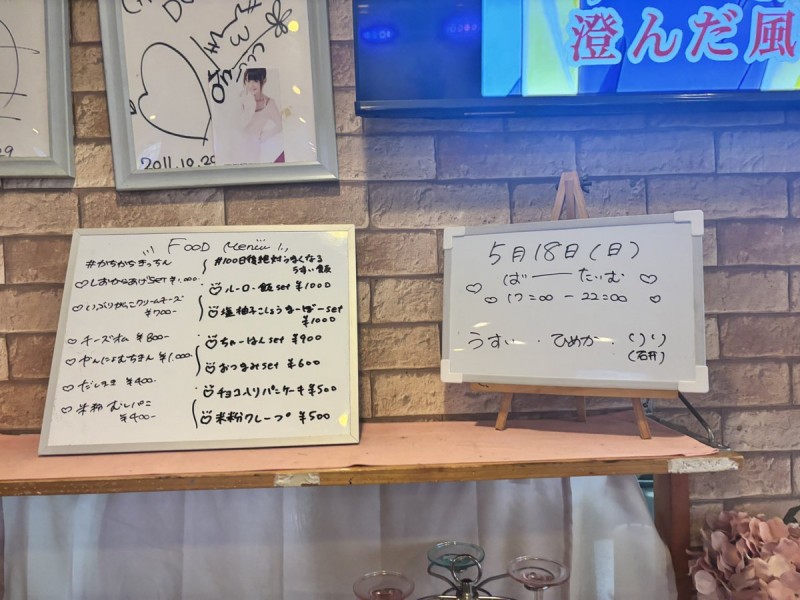 澄んだ風
2011.10.20
FOOD Menu
#がちがちきっちん
しおからあげset ¥1,000-
いぶりがっこクリームチーズ
¥700-
チーズオム ¥800-
やんにょむちきん ¥1,000-
だしまき ¥400-
米粉 むしパン
¥400-
#100日後絶対うまくなる
うすい飯
ルーロー飯set ¥1000
塩柚子こしょうまーぼーset
¥1000
ちゃーはんset ¥900
おつまみset ¥600
チョコ入りパンケーキ ¥500
米粉クレープ ¥500
5月18日(日)
ばーたいむ
17:00 - 22:00
うすい・ひめか・りり
(石井)